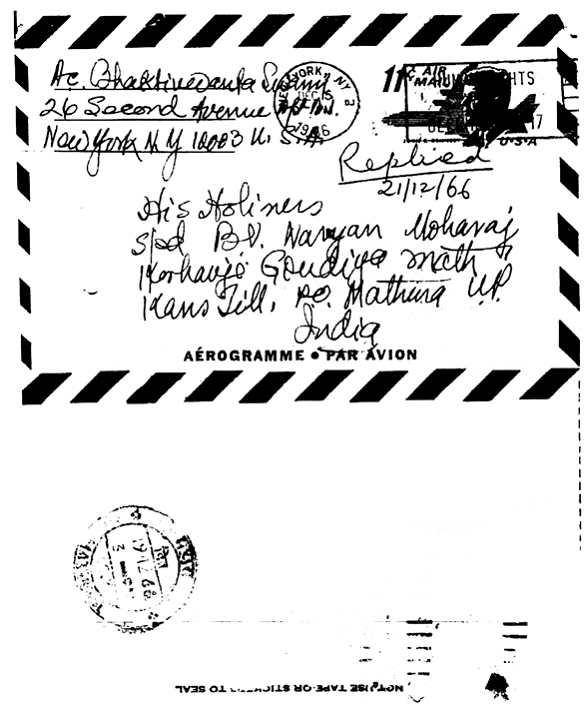 Ac. Bhaktivedanta Swami
26 Second Avenue Apt
New York N Y 10003 U. S. A.
NEW YORK, N.Y.
DEC 15
1966
11c AIR MAIL
HUMAN RIGHTS
U.S.A
Replied
21/12/66
His Holiness
Sripad B.V. Narayan Moharaj
Keshavji Goudiya math
Kans Till, P.O. Mathura U.P.
India
AÉROGRAMME • PAR AVION
19.12.66
NOT USE TAPE OR STICKERS TO SEAL